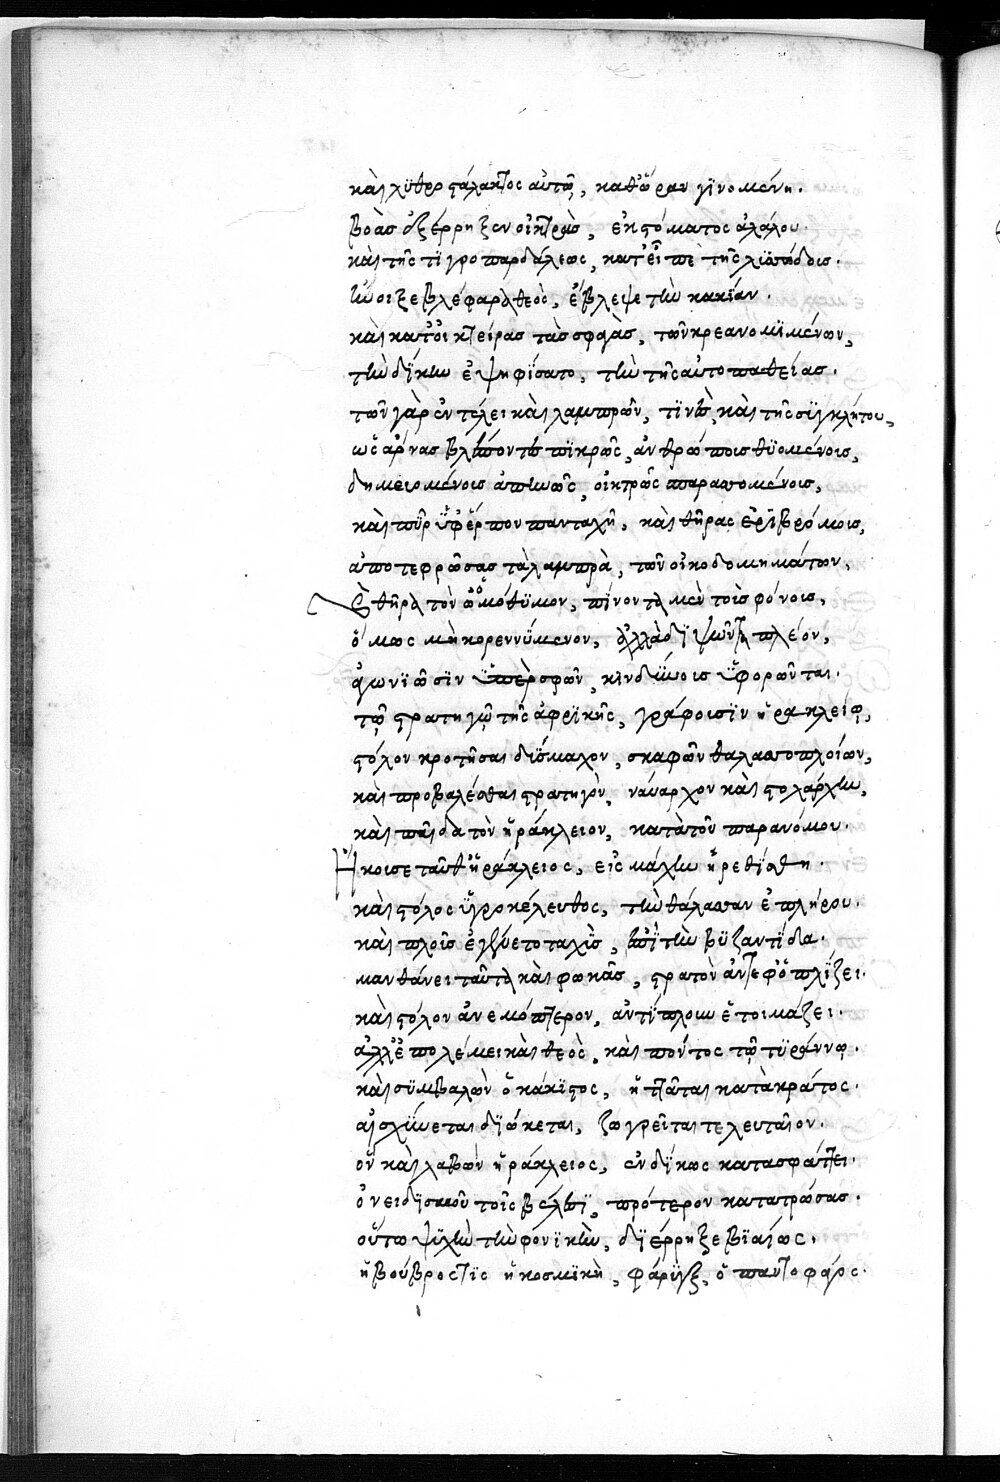 καὶ χύθρο στάλακτος αὐτῶ, καθ' ὥραν γϊνομένη.
βοὰς ἐξέρρηξεν οἰκτρὰς, ἐκ στόματος ἀλάλου.
καὶ τῆς τϊγροπαρδάλεως, κατεῖπε τῆς λϊσσάδος.
ἤνοιξε βλέφαρα θεὸς, ἔβλεψε τὴν κακίαν.
καὶ κατοικτείρας τὰς σφαγὰς, τῶν κρεανομϊμένων,
τὴν δίκην ἐψηφίσατο, τὴν τῆς αὐτοπαθείας.
τῶν γὰρ ἐν τέλει καὶ λαμπρῶν, τϊνὲς καὶ τῆς συγκλήτου,
ὡς ἄρνας βλέποντες πϊκρῶς, ἀνθρώποις θϋομένοις,
δημευομένοις ἀπηνῶς, οἰκτρῶς σπαραττομένοις,
καὶ πῦρ ὑφέρπον πανταχῆ, καὶ θῆρας ἐρϊβρόμοις,
ἀποτεφρώσας τὰ λαμπρὰ, τῶν οἰκοδομημάτων,
Θῆρα τὸν ὠμόθϋμον, πίνοντα μὲν τοῖς φόνοις,
ὅμως μὴ κορεννύμενον, ἀλλὰ δϊψῶντα πλέον,
ἀγωνϊῶσϊν ὑπὲρ σφῶν, κινδύνοις ὑφορῶνται.
τῶ στρατηγῶ τῆς ἀφρϊκῆς, γράφουσϊν ἡρακλείω,
στόλον κροτῆσαι δύσμαχον, σκαφῶν θαλαττοπλοίων,
καὶ προβαλέσθαι στρατηγὸν, ναύαρχον καὶ στολάρχην,
καὶ παῖδα τὸν ἡράκλειον, κατὰ τοῦ παρανόμου.
Ἤκουσε ταῦθ' ἡράκλειος, εἰς μάχην ἠρεθίσθη.
καὶ στόλος ὑγροκέλευθος, τὴν θάλατταν ἐπλήρου.
καὶ πλοῦς ἐγίνετο ταχὺς, ἐπὶ τὴν βϋζαντίδα.
μανθάνει ταῦτα καὶ φωκᾶς, στρατὸν ἀντεφοπλίζει.
καὶ στόλον ἀνεμόπτερον, ἀντίπλοιν ἑτοιμάζει.
ἀλλ' ἐπολέμει καὶ θεὸς, καὶ πόντος τῶ τϋράννω.
καὶ συμβαλὼν ὁ κάκιστος, ἡττᾶται κατὰ κράτος.
αἰσχύνεται διώκεται, ζωγρεῖται τελευταῖον.
ὃν καὶ λαβὼν ἡράκλειος, ἐνδίκως κατασφάττει.
ὀνειδισμοῦ τοῖς βέλεσϊ, πρότερον κατατρώσας.
οὕτω ψϋχὴν τὴν φονϊκὴν, δϊέρρηξε βϊαίως.
ἡ βούβρωστις ἡ κοσμϊκὴ, φάρυγξ, ὁ παντοφάγος.